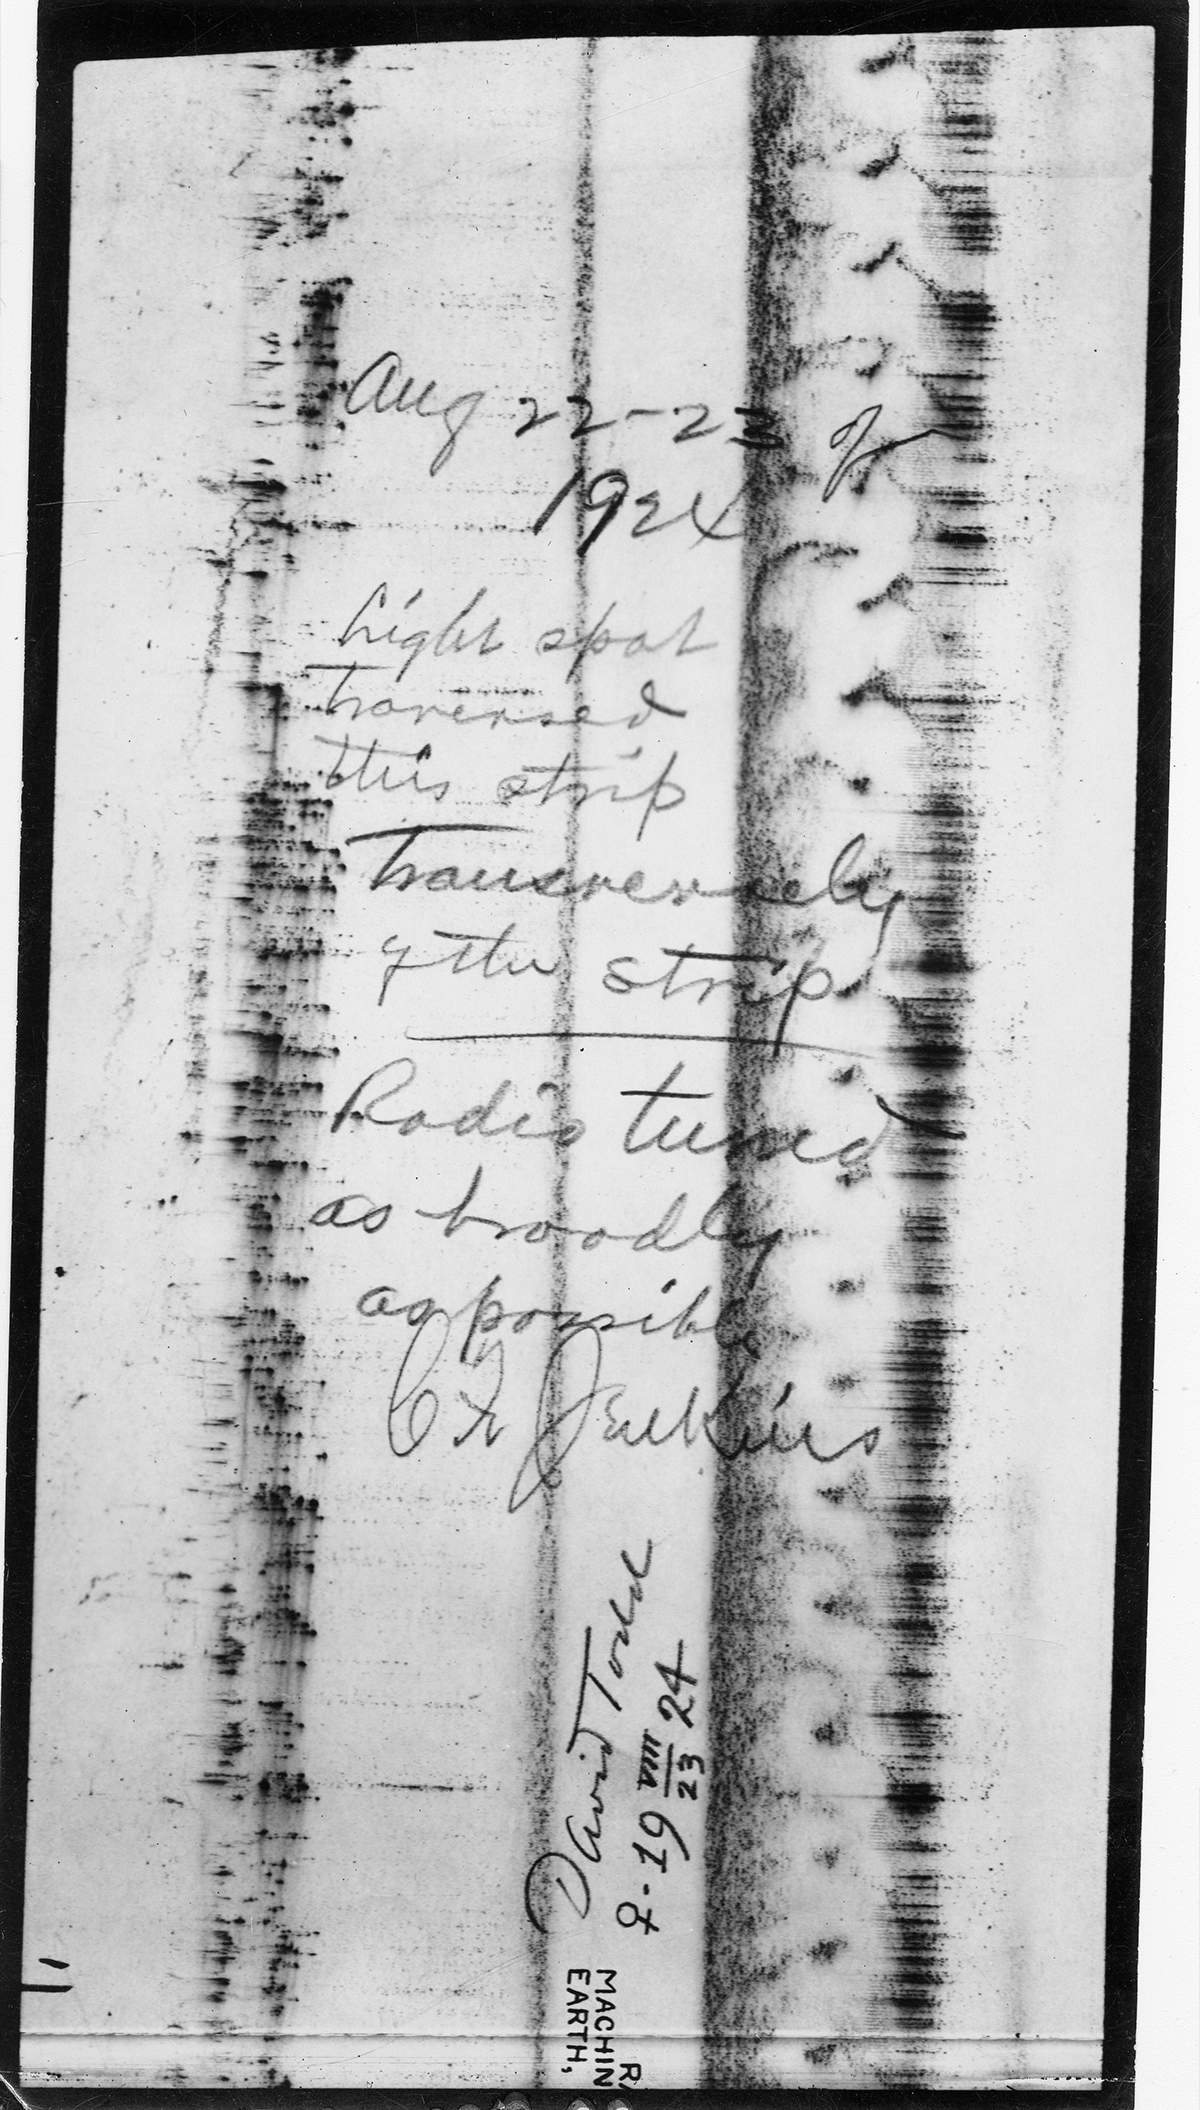 Aug 22-23 of
1924
Light spot
traversed
this strip
Transversely
of the strip
Radio tuned
as broadly
as possible
C F Jenkins
David Todd
♀-19 VIII 24
23
RA
MACHIN
EARTH,